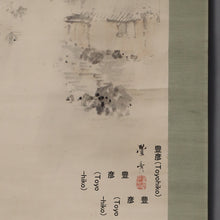 豊彦(Toyohiko)
豊
彦
(Toyo
-hiko)
豊
彦
(Toyo
-hiko)